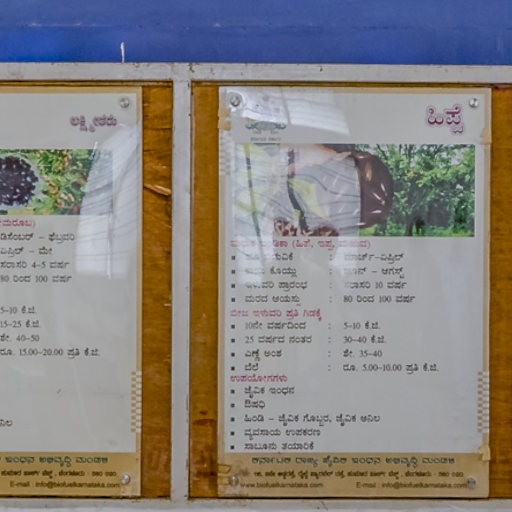 ಲಕ್ಷ್ಮೀತರು
ಡಿಸೆಂಬರ್ – ಫೆಬ್ರವರಿ
ಏಪ್ರಿಲ್ – ಮೇ
ಸರಾಸರಿ 4-5 ವರ್ಷ
80 ರಿಂದ 100 ವರ್ಷ
5-10 ಕೆ.ಜಿ.
15-25 ಕೆ.ಜಿ.
ಶೇ. 40-50
ರೂ. 15.00-20.00 ಪ್ರತಿ ಕೆ.ಜಿ.
ಇಂಧನ ಅಭಿವೃದ್ಧಿ ಮಂಡಳಿ
E-mail : info@biofuelkarnataka.com
ಹಿಪ್ಪೆ
(ಹಿಪೆ, ಇಪ್ಪ, ಮಹುವ)
: ಮಾರ್ಚ್-ಏಪ್ರಿಲ್
ಕೊಯ್ಲು : ಜೂನ್ – ಆಗಸ್ಟ್
ಇಳುವರಿ ಪ್ರಾರಂಭ : ಸರಾಸರಿ 10 ವರ್ಷ
ಮರದ ಆಯಸ್ಸು : 80 ರಿಂದ 100 ವರ್ಷ
ಬೀಜ ಇಳುವರಿ ಪ್ರತಿ ಗಿಡಕ್ಕೆ
10ನೇ ವರ್ಷದಿಂದ : 5-10 ಕೆ.ಜಿ.
25 ವರ್ಷದ ನಂತರ : 30-40 ಕೆ.ಜಿ.
ಎಣ್ಣೆ ಅಂಶ : ಶೇ. 35-40
ಬೆಲೆ : ರೂ. 5.00-10.00 ಪ್ರತಿ ಕೆ.ಜಿ.
ಉಪಯೋಗಗಳು
ಜೈವಿಕ ಇಂಧನ
ಔಷಧಿ
ಹಿಂಡಿ – ಜೈವಿಕ ಗೊಬ್ಬರ, ಜೈವಿಕ ಅನಿಲ
ವ್ಯವಸಾಯ ಉಪಕರಣ
ಸಾಬೂನು ತಯಾರಿಕೆ
ಕರ್ನಾಟಕ ರಾಜ್ಯ ಜೈವಿಕ ಇಂಧನ ಅಭಿವೃದ್ಧಿ ಮಂಡಳಿ
www.biofuelkarnataka.com E-mail : info@biofuelkarnataka.com